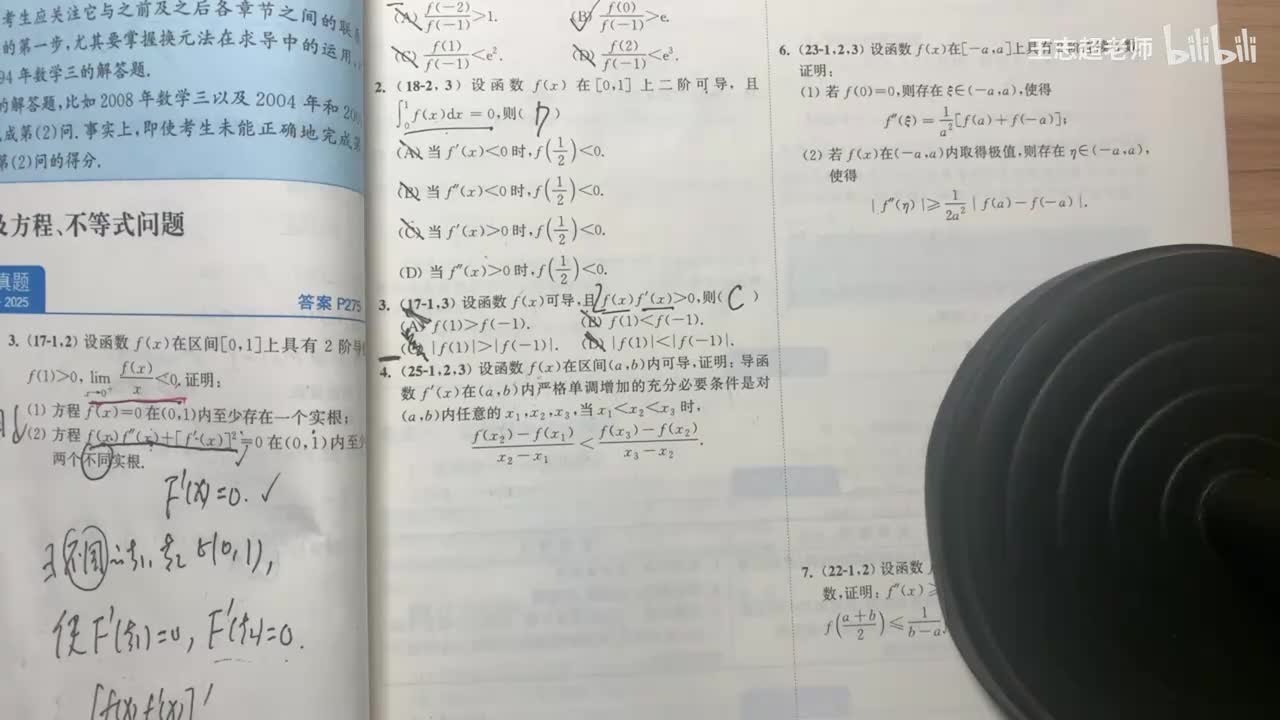 考生应关注它与之前及之后各章节之间的联
的第一步,尤其要掌握换元法在求导中的运用,
94年数学三的解答题.
的解答题,比如2008年数学三以及2004年和200
成第(2)问.事实上,即使考生未能正确地完成第
第(2)问的得分.
及方程、不等式问题
真题
2025
答案 P275
3. (17-1,2) 设函数 f(x) 在区间[0,1]上具有 2 阶导
f(1)>0, lim_{x→0⁺} f(x)/x <0. 证明:
(1) 方程 f(x)=0 在(0,1)内至少存在一个实根;
(2) 方程 f(x)f″(x)+[f′(x)]²=0 在(0,1)内至少
两个不同实根.
F′(x)=0. ✓
∃不同 ξ₁, ξ₂ ∈(0,1),
使F′(ξ₁)=0, F′(ξ₂)=0.
[f(x)f′(x)]′
(A) f(-2)/f(-1)>1.
(B) f(0)/f(-1)>e.
(C) f(1)/f(-1)<e².
(D) f(2)/f(-1)<e³.
2. (18-2, 3) 设函数 f(x) 在 [0,1] 上二阶可导,且
∫₀¹ f(x)dx = 0,则( D )
(A) 当 f′(x)<0 时, f(1/2)<0.
(B) 当 f″(x)<0 时, f(1/2)<0.
(C) 当 f′(x)>0 时, f(1/2)<0.
(D) 当 f″(x)>0 时, f(1/2)<0.
3. (17-1,3) 设函数 f(x) 可导,且 2 f(x)f′(x)>0,则( C )
(A) f(1)>f(-1).
(B) f(1)<f(-1).
(C) |f(1)|>|f(-1)|.
(D) |f(1)|<|f(-1)|.
4. (25-1,2,3) 设函数 f(x) 在区间(a,b)内可导,证明:导函
数 f′(x)在(a,b)内严格单调增加的充分必要条件是对
(a,b)内任意的 x₁,x₂,x₃,当 x₁<x₂<x₃ 时,
(f(x₂)-f(x₁))/(x₂-x₁) < (f(x₃)-f(x₂))/(x₃-x₂).
王志超老师 bilibili
6. (23-1,2,3) 设函数 f(x)在[-a,a]上具有
证明:
(1) 若 f(0)=0,则存在 ξ∈(-a,a),使得
f″(ξ)=1/a²[f(a)+f(-a)];
(2) 若 f(x)在(-a,a)内取得极值,则存在 η∈(-a,a),
使得
|f″(η)|≥1/(2a²)|f(a)-f(-a)|.
7. (22-1,2) 设函数
数,证明: f″(x)≥
f((a+b)/2)≤1/(b-a)